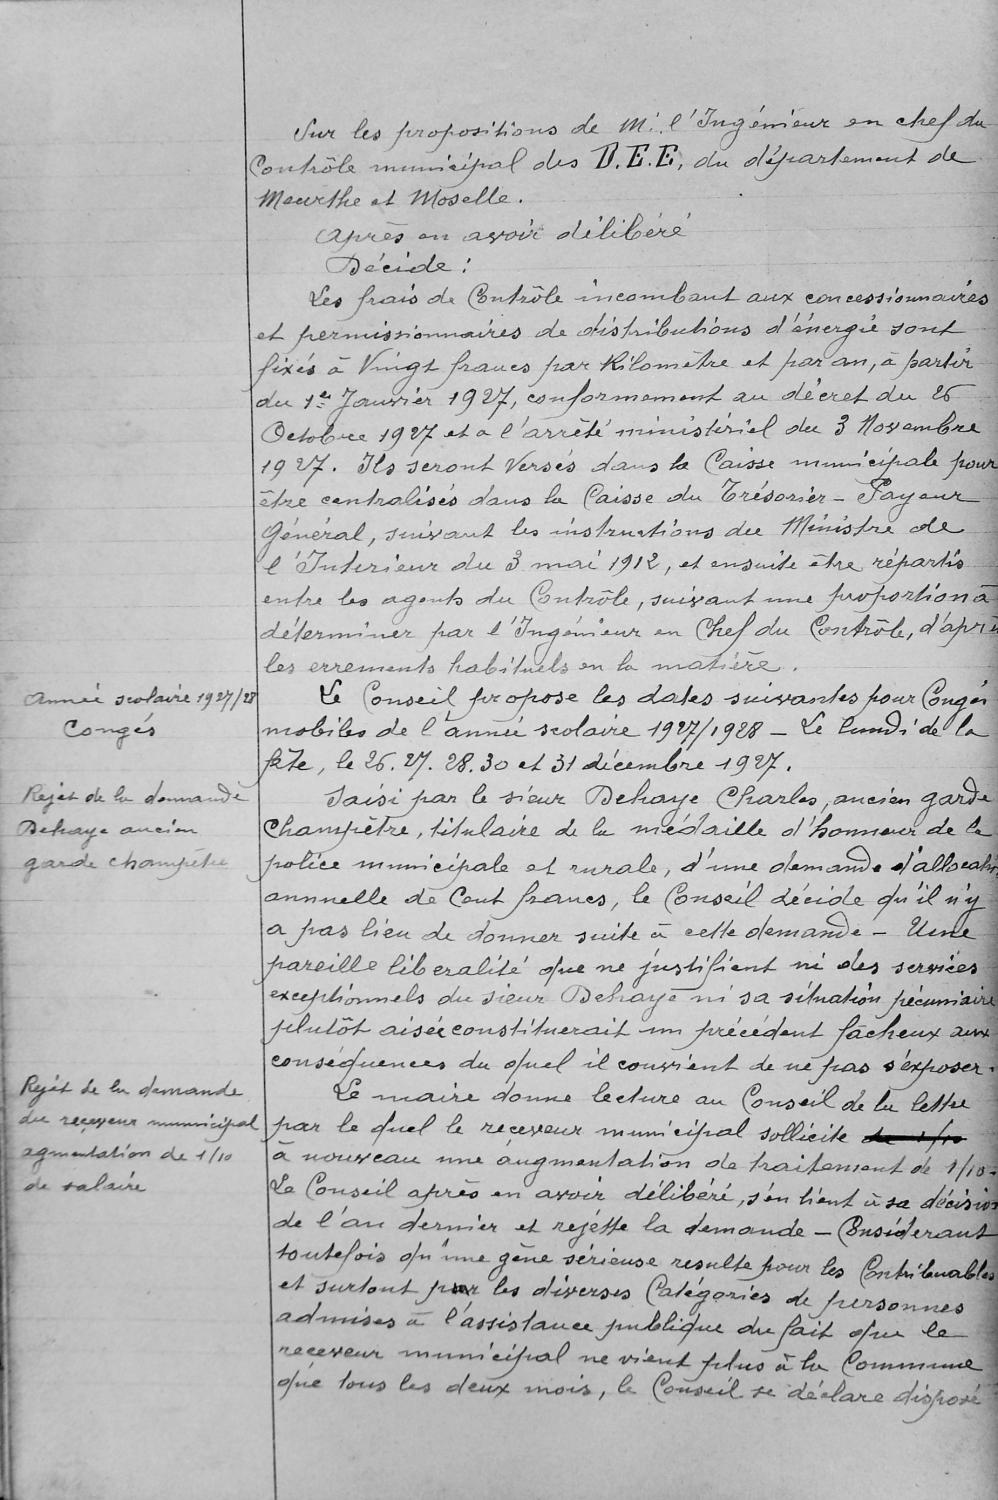 Sur les propositions de M. l'Ingénieur en chef du
Contrôle municipal des D.E.E, du département de
Meurthe et Moselle.
Après en avoir délibéré
Décide :
Les frais de Contrôle incombant aux concessionnaires
et permissionnaires de distributions d'énergie sont
fixés à Vingt francs par Kilomètre et par an, à partir
du 1er Janvier 1927, conformement au décret du 26
Octobre 1927 et a l'arrêté ministériel du 3 Novembre
1927. Ils seront Versés dans la Caisse municipale pour
être centralisés dans la Caisse du Trésorier - Payeur
Général, suivant les instructions du Ministre de
l'Interieur du 3 mai 1912, et ensuite être répartis
entre les agents du Contrôle, suivant une proportion à
déterminer par l'Ingénieur en Chef du Contrôle, d'après
les errements habituels en la matière.
Année scolaire 1927/28
Congés
Le Conseil propose les dates suivantes pour Congés
mobiles de l'année scolaire 1927/1928 - Le lundi de la
fête, le 26. 27. 28. 30 et 31 décembre 1927.
Rejet de la demande
Dehaye ancien
garde champêtre
Saisi par le sieur Dehaye Charles, ancien garde
Champêtre, titulaire de la médaille d'honneur de la
police municipale et rurale, d'une demande d'allocation
annuelle de Cent francs, le Conseil décide qu'il n'y
a pas lieu de donner suite à cette demande - Une
pareille liberalité que ne justifient ni des services
exceptionnels du sieur Dehaye ni sa situation pécuniaire
plutôt aisée constituerait un précédent fâcheux aux
conséquences du quel il convient de ne pas s'exposer.
Rejet de la demande
du receveur municipal
agmentation de 1/10
de salaire
Le maire donne lecture au Conseil de la lettre
par le quel le receveur municipal sollicite de 1/10
à nouveau une augmentation de traitement de 1/10 -
Le Conseil après en avoir délibéré, s'en tient à sa décision
de l'an dernier et rejette la demande - Considerant
toutefois qu'une gêne sérieuse resulte pour les Contribuables
et surtout pour les diverses Catégories de personnes
admises à l'assistance publique du fait que le
receveur municipal ne vient plus à la Commune
que tous les deux mois, le Conseil se déclare disposé